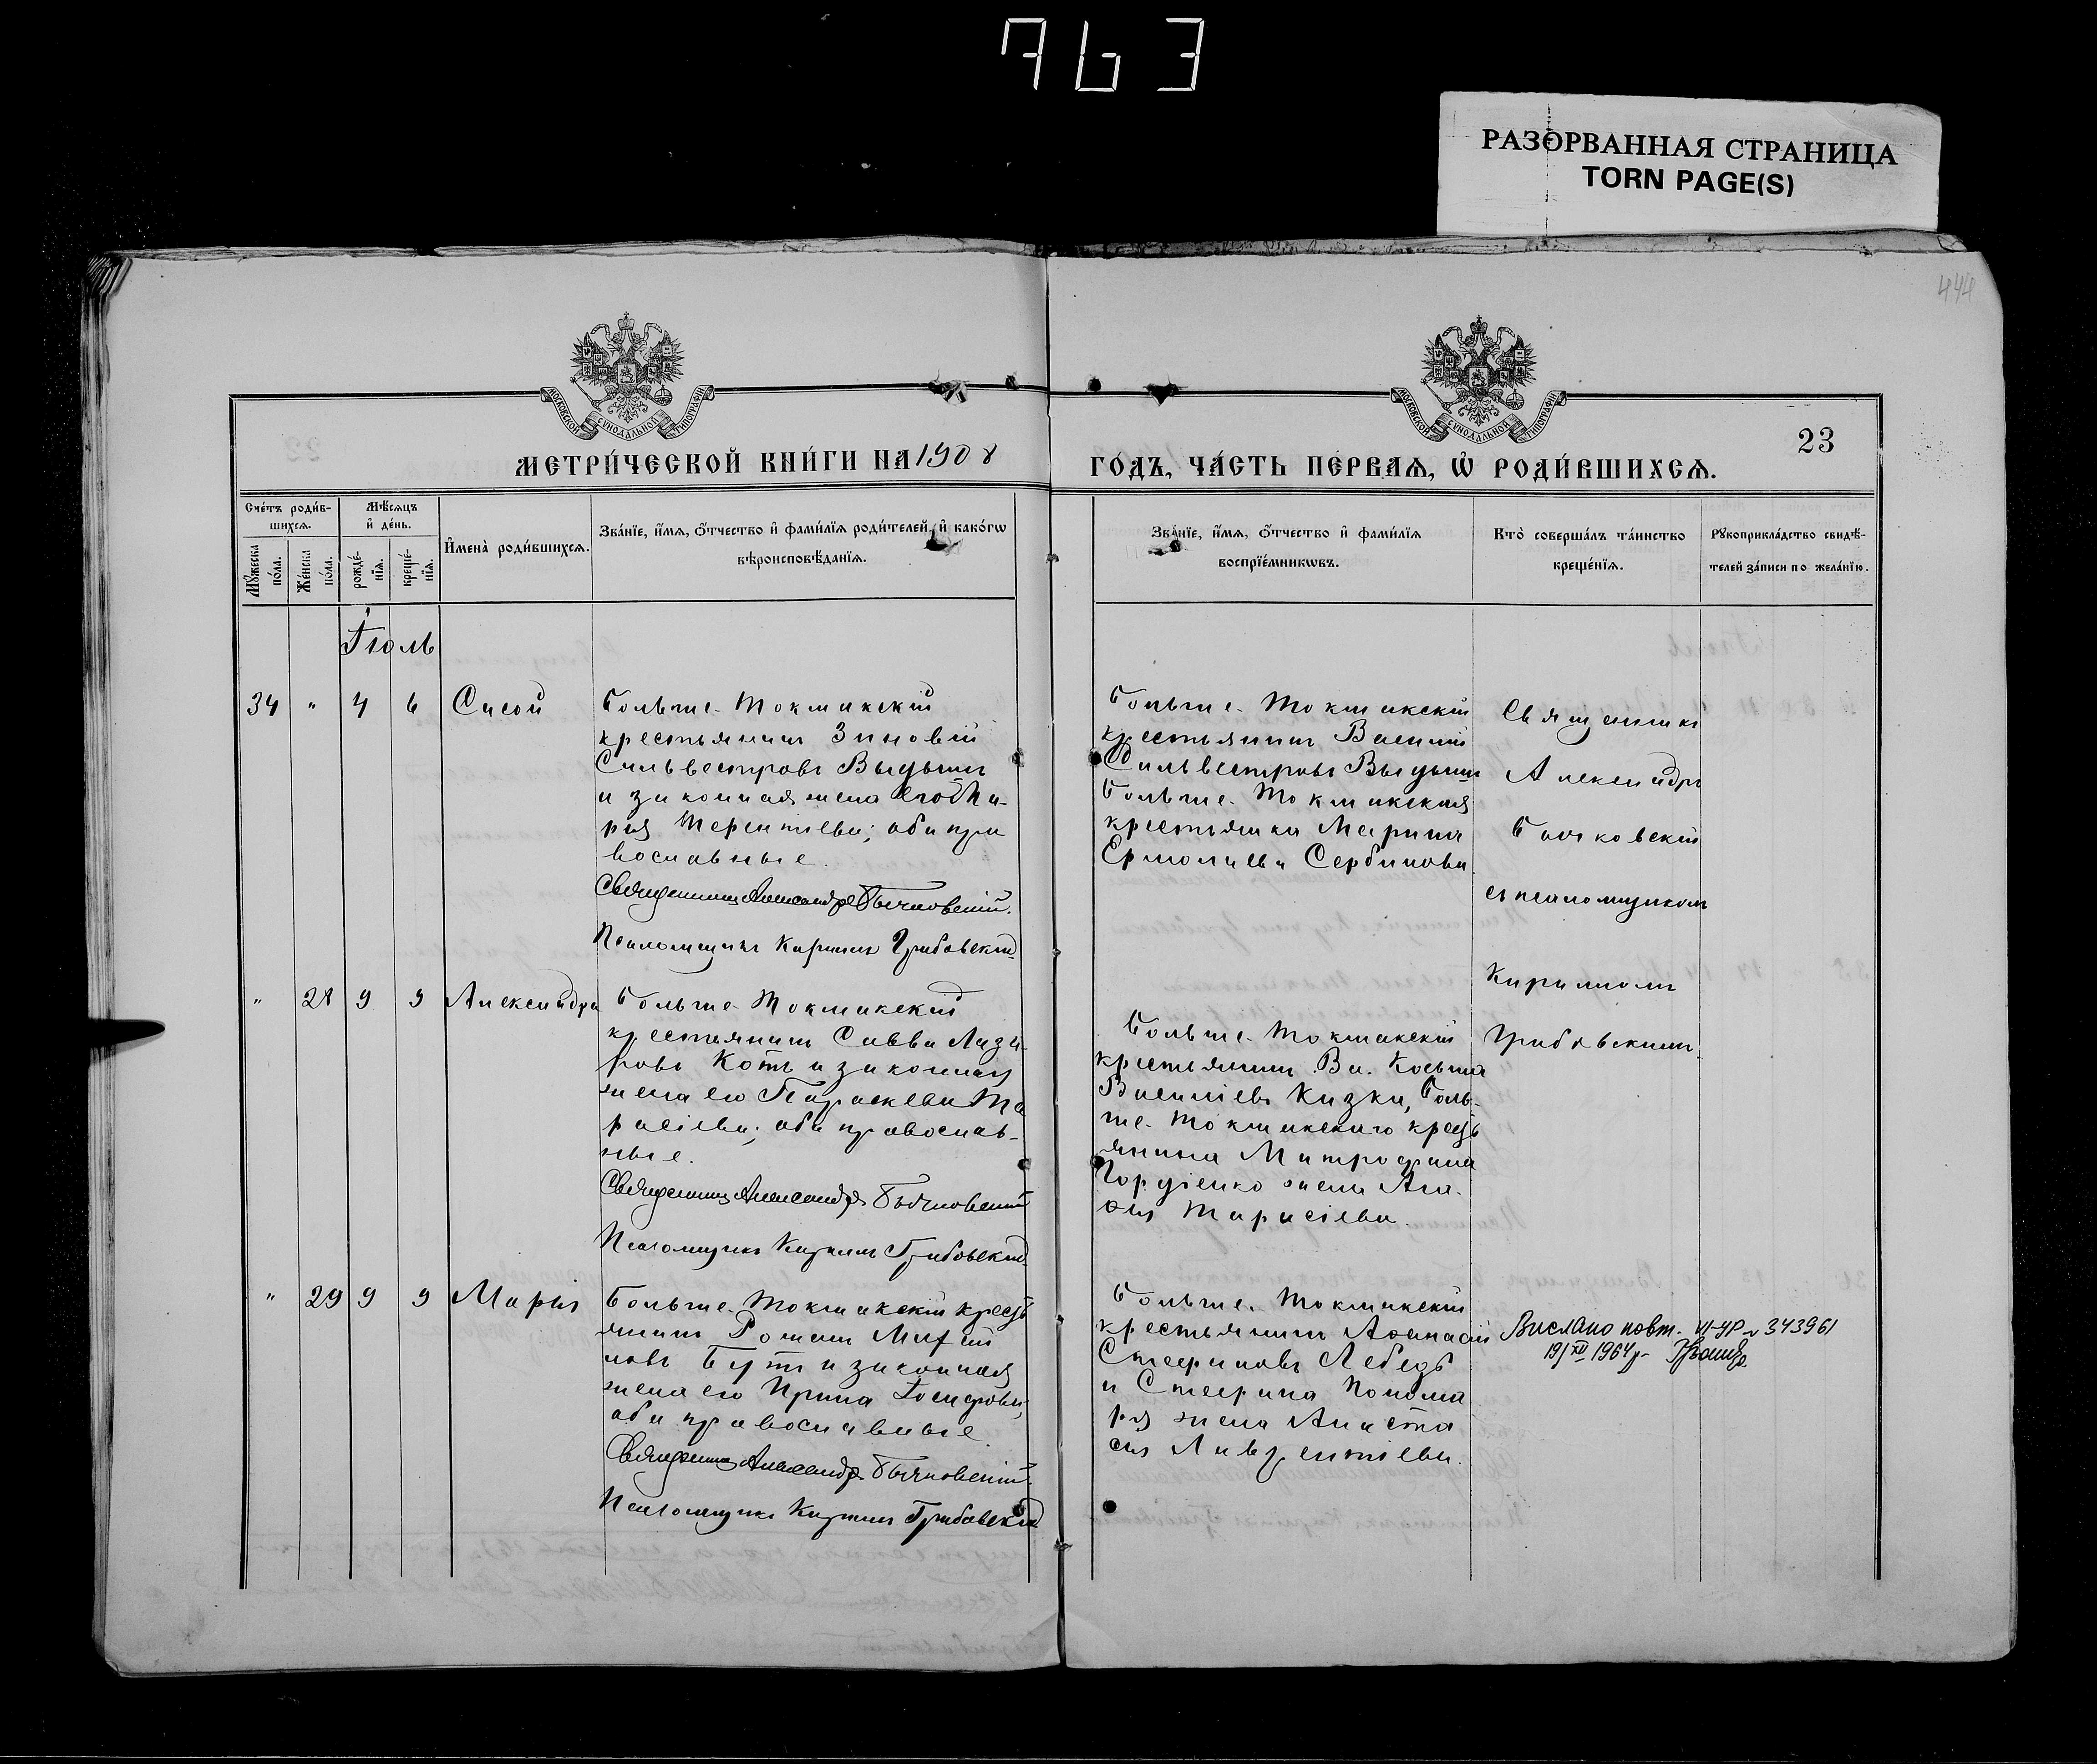 763
РАЗОРВАННАЯ СТРАНИЦА
TORN PAGE(S)
444
МОСКОВСКОЙ СѴНОДАЛЬНОЙ ТИПОГРАФІИ
МОСКОВСКОЙ СѴНОДАЛЬНОЙ ТИПОГРАФІИ
23
МЕТРИ́ЧЕСКОЙ КНИ́ГИ НА 1908
ГО́ДЪ, ЧА́СТЬ ПЕ́РВАѦ, Ѡ РОДИ́ВШИХСѦ.
Сче́тъ роди́в-
шихсѧ.
Мꙋжеска по́ла.
Же́нска по́ла.
Мѣ́сѧцъ
и҆ де́нь.
рожде́-
нїѧ.
креще́-
нїѧ.
И҆мена̀ роди́вшихсѧ.
Зва́нїе, и҆́мѧ, ѻ҆́тчество и҆ фами́лїѧ роди́телей, и҆ како́гѡ
вѣроисповѣ́данїѧ.
Зва́нїе, и҆́мѧ, ѻ҆́тчество и҆ фами́лїѧ
воспрїе́мникѡвъ.
Кто̀ соверша́лъ та́инство
креще́нїѧ.
Рꙋкоприкла́дство свидѣ́-
телей за́писи по жела́нїю.
Іюль
34 " 4 6 Сисой
Больше-Токмакскій
крестьянинъ Зиновій
Сильвестровъ Выдыш
и законная жена его Ма-
рія Терентіева; оба пра
вославные.
Священникъ Александръ Бычковскій.
Псаломщикъ Кириллъ Грибовскій
Больше-Токмакскій
крестьянинъ Василій
Сильвестровъ Выдыш
Больше-Токмакская
крестьянка Марина
Ермолаева Сербинова
Священникъ
Александръ
Бычковскій
съ псаломщикомъ
Кирилломъ
Грибовскимъ.
" 28 9 9 Александра
Больше-Токмакскій
крестьянинъ Савва Лаза-
ровъ Котъ и законная
жена его Параскева Та
расіева; оба православ-
ные.
Священникъ Александръ Бычковскій
Псаломщикъ Кириллъ Грибовскій
Больше-Токмакскій
крестьянинъ Ва. Косьма
Василіевъ Кизка, Боль-
ше-Токмакскаго кресть
янина Митрофана
Гордіенко жена Ага-
ѳія Тарасіева.
" 29 9 9 Марія
Больше-Токмакскій кресть
янинъ Романъ
новъ Бутъ и законная
жена его Ирина Іосифова,
оба православные.
Священникъ Александръ Бычковскій
Псаломщикъ Кириллъ Грибовскій
Больше-Токмакскій
крестьянинъ Аѳанасій
Стефановъ Лебедь
и Стефана Понома
ря жена Анаста
сія Лаврентіева.
Вислано повт. VI-УР № 343961
19/XII 1964 р.